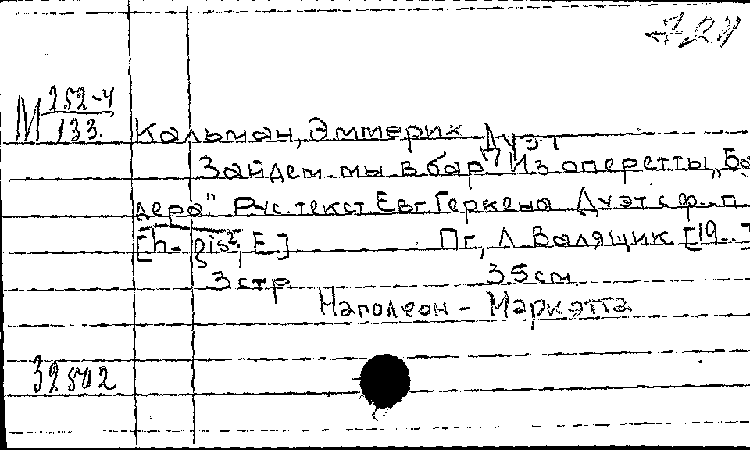 М 252-4
133.
Кальман, Эммерих Дуэт
Зайдем мы в бар" Из оперетты „Ба
дера" Рус. текст Евг. Геркена Дуэт с ф.-п.
[h-gis², E.] Пг, Л. Валящик [19..]
3 стр 35 см
Наполеон - Мариэтта
32502